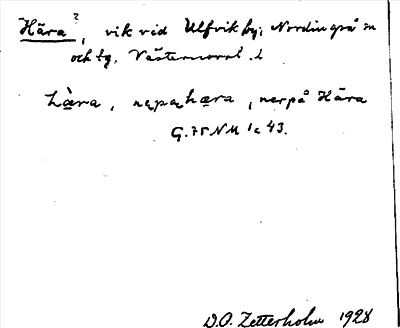 Hära?, vik vid Ulfvik by; Nordingrå sn
och tg. Västernorrl. l
hära, nepahæra, nerpå Hära
G. 75 NM 1c 43.
D.O. Zetterholm 1928